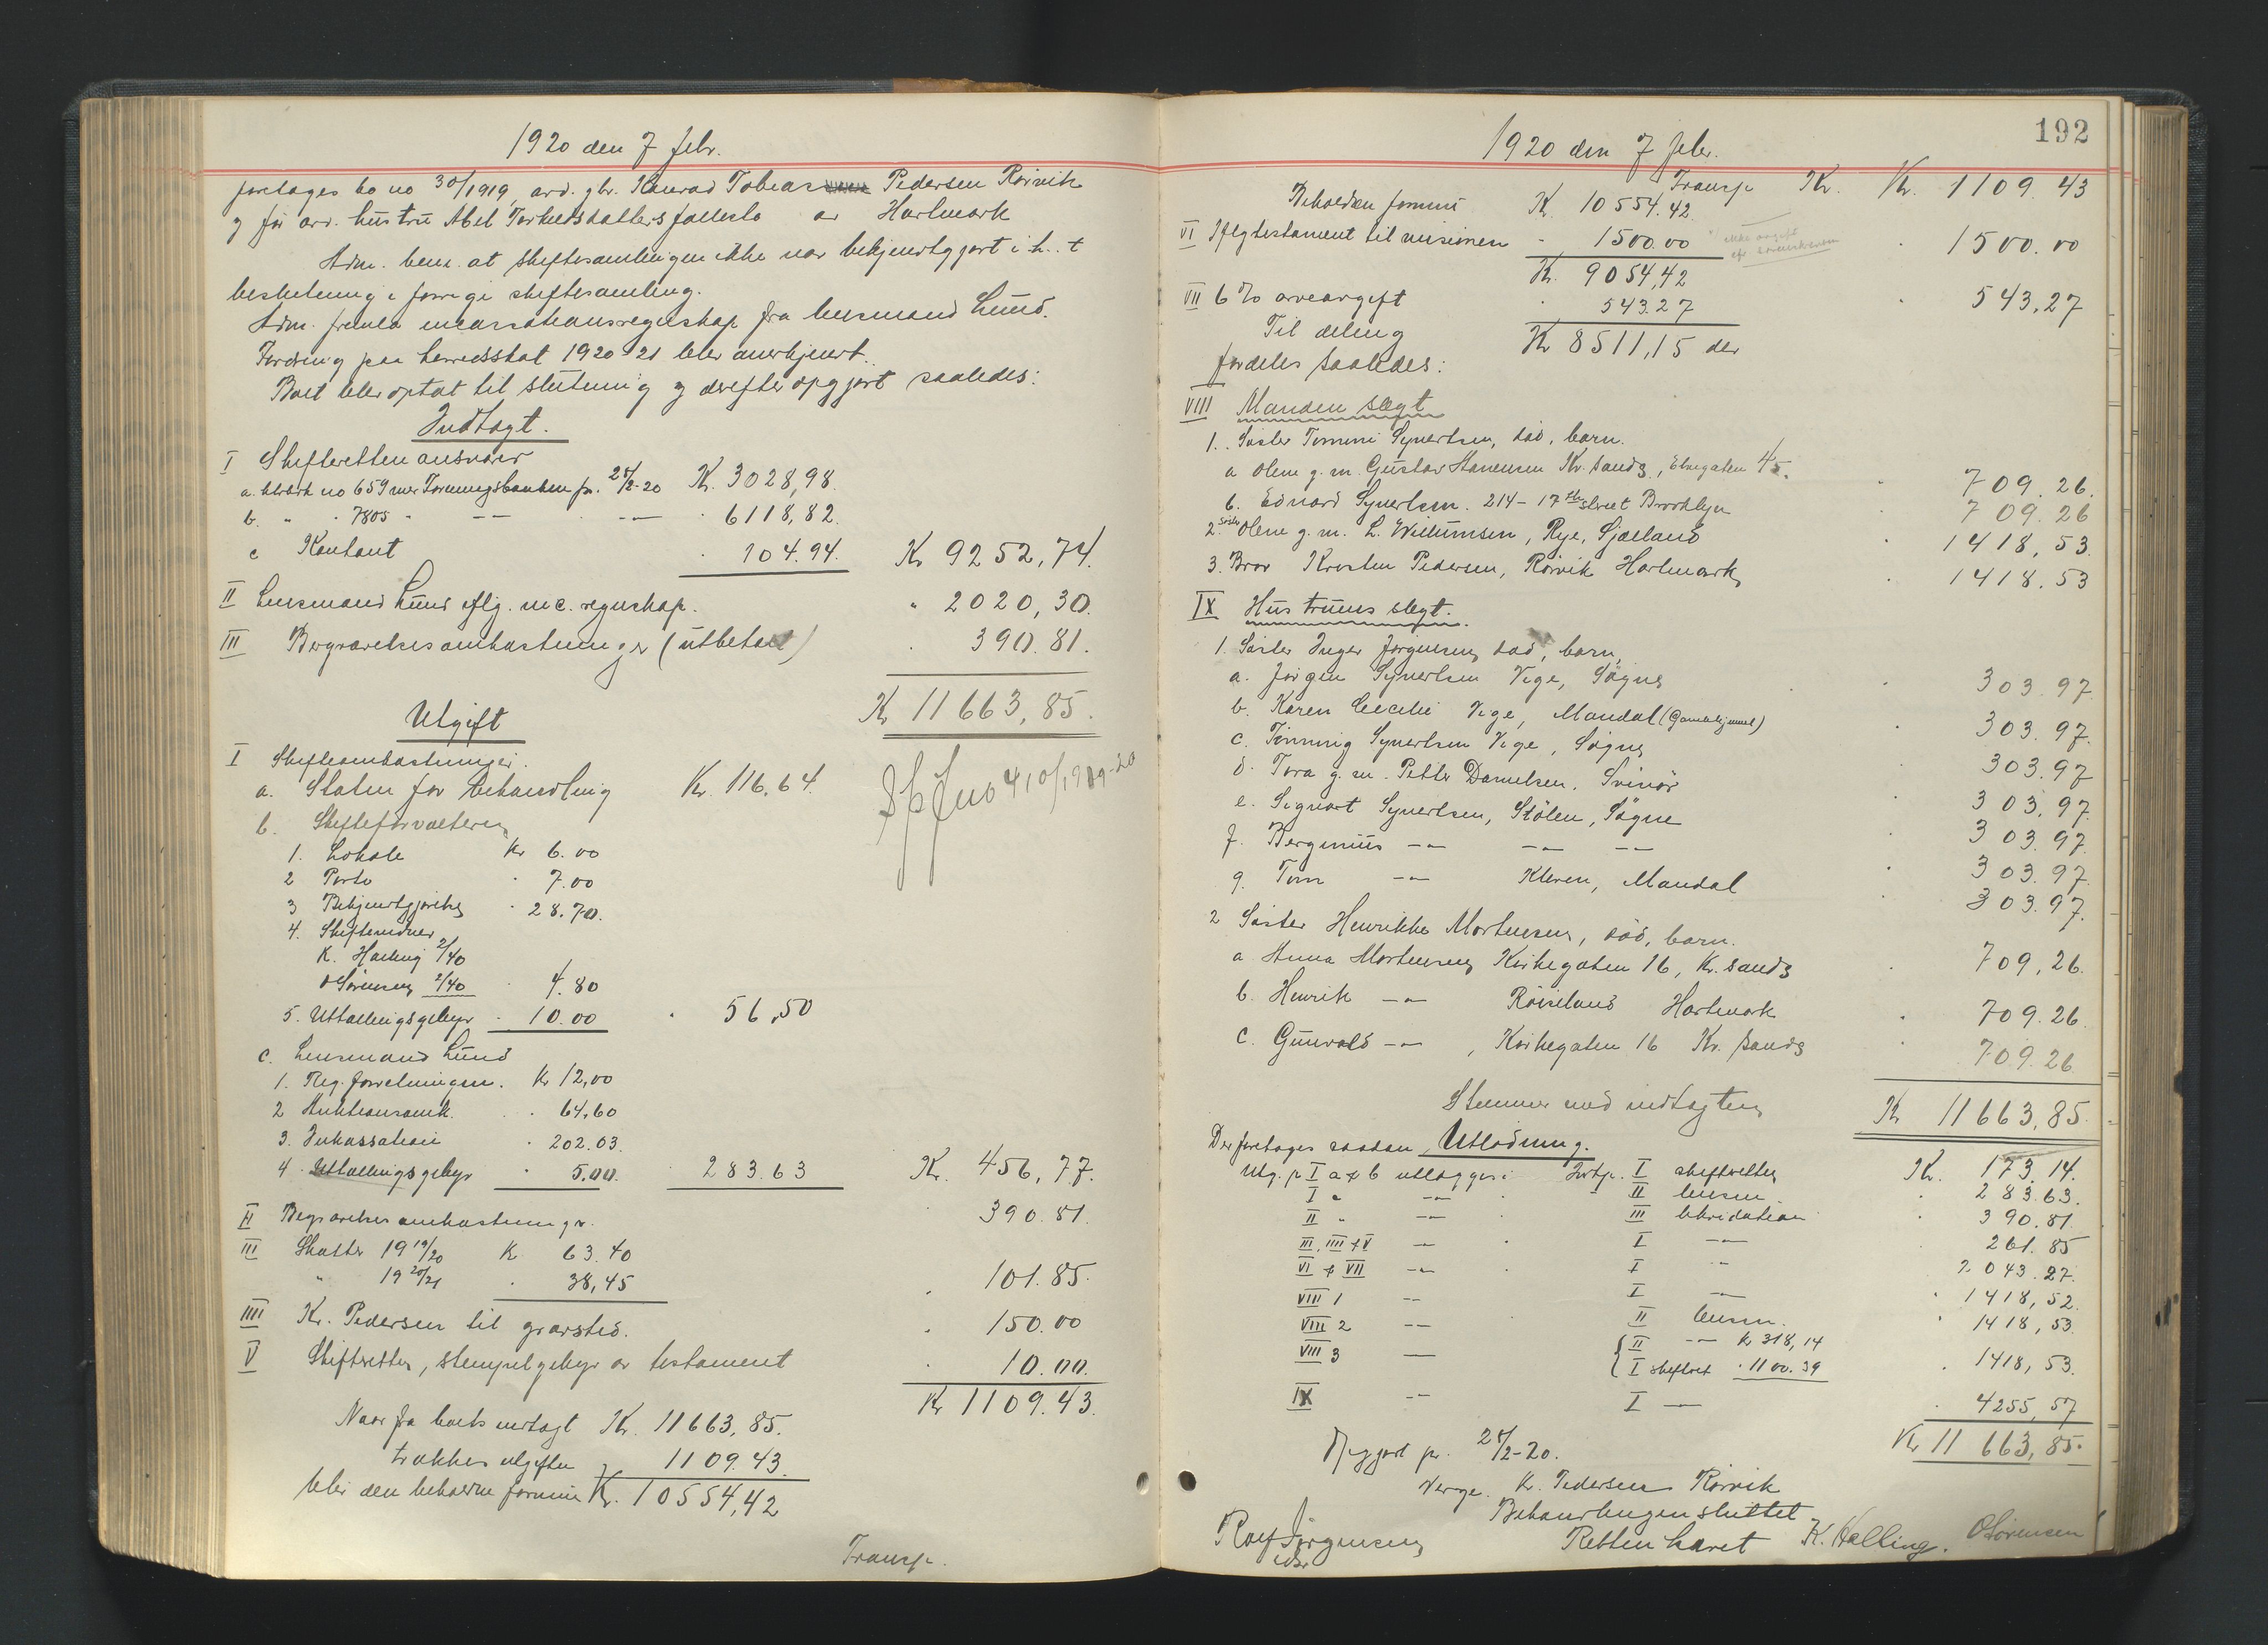 1920 den 7 febr.
foretages bo no 30/1919, avd. gbr. Konrad Tobias Pedersen Rörvik
og før avd. hustru Abel Torkelsdatters fællesbo av Hartmark
Adm. bem. at skiftesamlingen ikke var bekjendtgjort i h. t
beslutning i forrige skiftesamling.
Adm. fremla incassationsregnskap fra lensmand Lund.
Fordring paa herredsskat 1920-21 blev anerkjent.
Boet blev optat til slutning og derefter opgjort saaledes:
Indtægt.
I Skifteretten ansvarer
a. bkbok no 659 med Foreningsbanken pr. 25/2-20 Kr. 3028,98.
b. " · 7805 - -"- · -"- · 6118,82.
c Kontant · 104.94. Kr 9252,74.
II Lensmand Lund iflg. inc. regnskap. " 2020,30.
III Begravelsesomkostninger (utbetalt) . 390.81.
Kr 11663,85.
Utgift
I Skifteomkostninger.
a. Staten for behandling Kr. 116.64.
b. Skifteforvalteren
1. Lokale Kr 6.00
2 Porto · 7.00
3 Bekjendtgjørelse · 28.70.
4. Skiftevidner
K. Halling 2/40
O Sørensen 2/40 · 4.80
5. Utlodningsgebyr · 10.00 · 56,50
c. Lensmand Lund
1. Reg. forretningen. Kr 12,00
2 Auktionsomk. · 64,60
3. Inkassation · 202.03.
4. Utlodningsgebyr · 5.00. 283.63 Kr. 456,77.
II Begravelsesomkostninger. 390.81.
III Skatter 19 19/20 K 63.40
" 19 20/21 · 38,45 101.85.
IIII Kr. Pedersen til gravsted. . 150.00
V Skifteretten, stempelgebyr av testament . 10.00.
Kr 1109.43.
Naar fra boets indtægt Kr. 11663,85.
trækkes utgiften 1109.43.
blir den beholdne formue Kr. 10554,42
Transp.
192
1920 den 7 febr.
Transp Kr. Kr. 1109.43
Beholden formue Kr. 10554.42
VI Iflg testament til misionen - 1500.00 · 1500.00
Kr. 9054,42
VII 6 % arveavgift · 543.27 · 543,27
Til deling Kr 8511,15 der
fordeles saaledes:
VIII Manden slegt
1. Søster Tomine Synertsen, död, barn.
a Olene g. m. Gustav Hanensen Kr.sands, Elvegaten 45. · 709.26.
b. Edvard Synertsen. 214 - 17 the street Brooklyn 709.26
2. søster Olene g. m. L. Willumsen, Rye, Sjælland · 1418,53.
3. Bror Kristen Pedersen, Rörvik Hartmark · 1418.53
IX Hustruens slegt.
1. Søster Inger Jørgensen död, barn,
a. Jørgen Synertsen Vige, Søgne 303.97.
b. Karen Cecilie Vige, Mandal (Gamlehjemmet) 303.97.
c. Tönning Synertsen Vige, Søgne 303.97
d. Tora g. m. Petter Danielsen. Svinør 303.97.
e. Sigvart Synertsen, Stölen, Søgne 303.97.
f. Berginius -"- -"- -"- 303.97.
g. Tom -"- Kleven, Mandal 303.97.
2 Søster Henrikke Mortensen, död, barn.
a Anna Mortensen Kirkegaten 16, Kr.sands . 709,26.
b. Henrik -"- Röiseland Hartmark . 709.26.
c. Gunvald -"- , Kirkegaten 16 Kr. sands 709.26
Stemmer med indtægten Kr 11663,85.
Der foretages saadan Utlodning.
Utg. p I a & b utlægges i Indtp. I skifteretten Kr. 173.14.
I c -"- II lensm. 283.63.
II " -"- III likvidation 390.81
III, IIII & V -"- I -"- 261.85
VI & VII -"- I -"- 2043.27.
VIII 1 -"- I -"- 1418,52.
VIII 2 -"- II lensm. 1418,53
VIII 3 -"- II -"- Kr 318,14
I skifteret · 1100.39 1418,53.
IX -"- I -"- 4255,57
Kr 11663,85.
Opgjort pr. 25/2-20.
Verge. Kr. Pedersen Rörvik
Behandlingen sluttet.
Retten hævet
Rolf Jørgensen K. Halling. O Sørensen